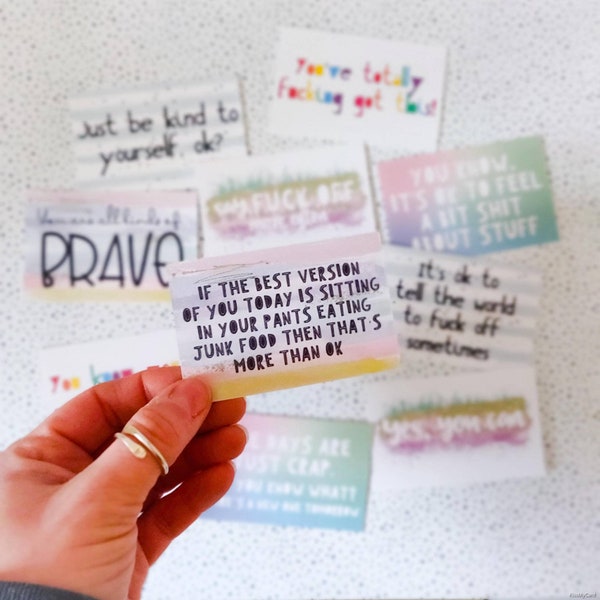 You're totally
fucking got this!
Just be kind to
yourself, ok?
You are all kinds of
BRAVE
say FUCK OFF
more often
YOU KNOW,
IT'S OK TO FEEL
A BIT SHIT
ABOUT STUFF
IF THE BEST VERSION
OF YOU TODAY IS SITTING
IN YOUR PANTS EATING
JUNK FOOD THEN THAT'S
MORE THAN OK
It's ok to
tell the world
to fuck off
sometimes
You know
yes, you can
DAYS ARE
JUST CRAP.
YOU KNOW WHAT?
A NEW ONE TOMORROW